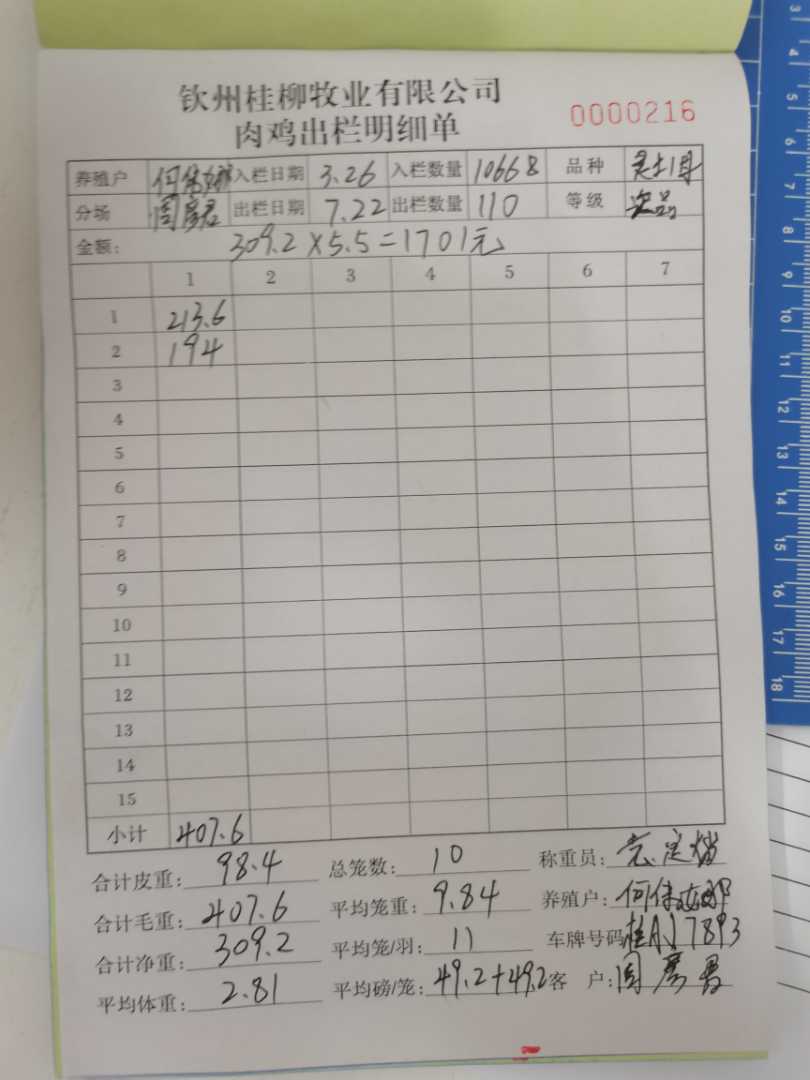 钦州桂柳牧业有限公司
肉鸡出栏明细单
0000216
养殖户 何 入栏日期 3.26 入栏数量 10668 品种 灵土
分场 周彦君 出栏日期 7.22 出栏数量 110 等级 次品
金额: 309.2×5.5=1701元
1 2 3 4 5 6 7
1 213.6
2 194
3
4
5
6
7
8
9
10
11
12
13
14
15
小计 407.6
合计皮重: 98.4 总笼数: 10 称重员:
合计毛重: 407.6 平均笼重: 9.84 养殖户: 何
合计净重: 309.2 平均笼/羽: 11 车牌号码: 桂A 7893
平均体重: 2.81 平均磅/笼: 49.2+49.2 客 户: 周彦君
3
4
5
6
7
8
9
10
11
12
13
14
15
16
17
18